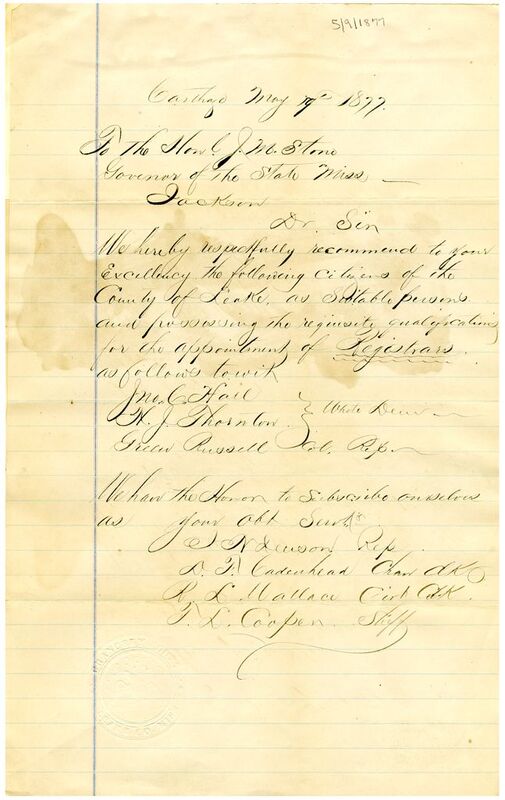 5/9/1877
Carthage May 9th 1877.
To the Honl. J. M. Stone
Govenor of the State Miss
Jackson
Dr. Sir
We hereby respectfully recommend to your
Excellency the following citizens of the
County of Leake, as suitable persons
and possessing the requisite qualifications
for the appointment of Registrars.
as follows towit
Jno. C. Hail
H. J. Thornton } White Dem
Green Russell Col. Rep.
We have the Honor to subscribe ourselves
as your obt Servts.
S N Denson Rep
D. F. Cadenhead Chan Clk
R. L. Wallace Circt Clk
T. L. Cooper Shff